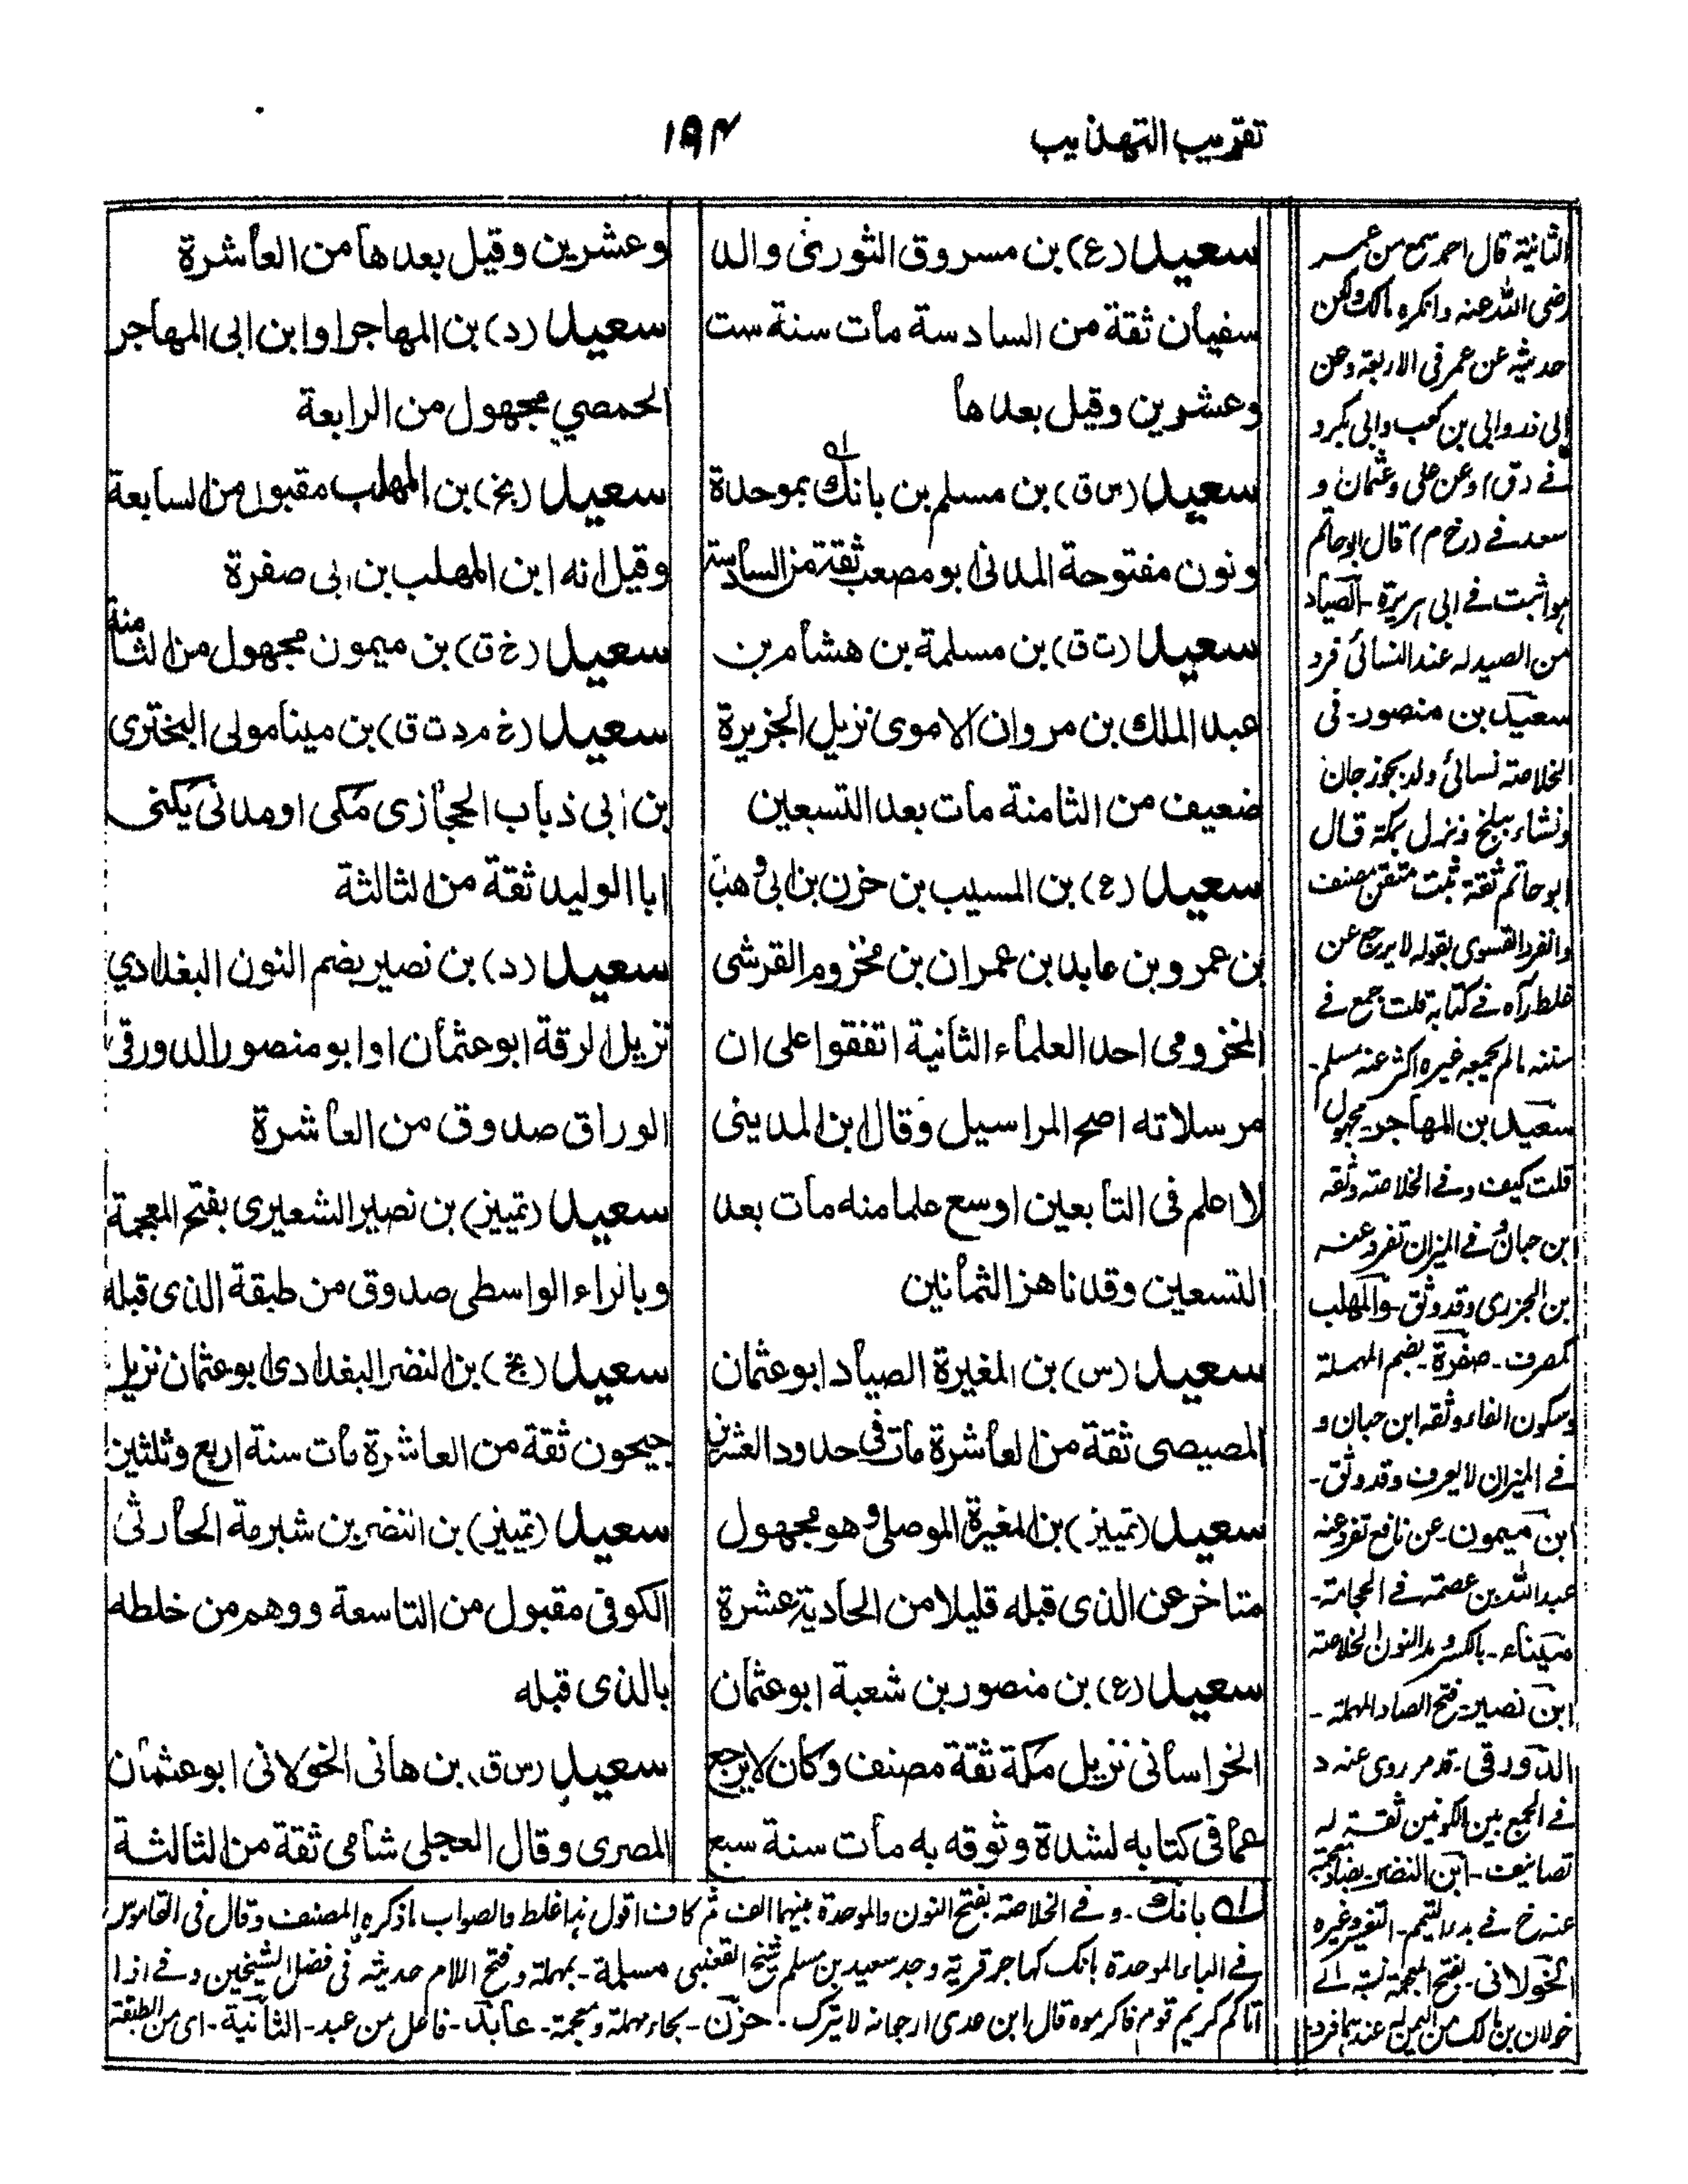 تقريب التهذيب
١٩٤
سعيد (ع) بن مسروق الثوري والد
سفيان ثقة من السادسة مات سنة ست
وعشرين وقيل بعدها
سعيد (س ق) بن مسلم بن بانك بموحدة
ونون مفتوحة المدنى ابو مصعب ثقة من السادسة
سعيد (ت ق) بن مسلمة بن هشام بن
عبد الملك بن مروان الاموى نزيل الجزيرة
ضعيف من الثامنة مات بعد التسعين
سعيد (ع) بن المسيب بن حزن بن ابى وهب
بن عمرو بن عابد بن عمران بن مخزوم القرشى
المخزومى احد العلماء الثانية اتفقوا على ان
مرسلاته اصح المراسيل وقال ابن المدينى
لا اعلم فى التابعين اوسع علما منه مات بعد
التسعين وقد ناهز الثمانين
سعيد (س) بن المغيرة الصياد ابو عثمان
المصيصى ثقة من العاشرة مات فى حدود العشرين
سعيد (تمييز) بن المغيرة الموصلى وهو مجهول
متاخر عن الذى قبله قليلا من الحادية عشرة
سعيد (ع) بن منصور بن شعبة ابو عثمان
الخراسانى نزيل مكة ثقة مصنف وكان لا يرجع
عما فى كتابه لشدة وثوقه به مات سنة سبع
وعشرين وقيل بعدها من العاشرة
سعيد (د) بن المهاجر او ابن ابى المهاجر
الحمصي مجهول من الرابعة
سعيد (بخ) بن المهلب مقبول من السابعة
وقيل انه ابن المهلب بن ابى صفرة
سعيد (خ ق) بن ميمون مجهول من الثامنة
سعيد (خ م د ت ق) بن مينا مولى البخترى
بن ابي ذباب الحجازى مكى او مدنى يكنى
ابا الوليد ثقة من الثالثة
سعيد (د) بن نصير بضم النون البغدادي
نزيل الرقة ابو عثمان او ابو منصور الدورقى
الوراق صدوق من العاشرة
سعيد (تمييز) بن نصير الشعيرى بفتح المعجمة
وبالراء الواسطى صدوق من طبقة الذى قبله
سعيد (بخ) بن النضر البغدادى ابو عثمان نزيل
جيحون ثقة من العاشرة مات سنة اربع وثلثين
سعيد (تمييز) بن النضر بن شبرمة الحارثى
الكوفى مقبول من التاسعة ووهم من خلطه
بالذى قبله
سعيد (س ق) بن هانى الخولانى ابو عثمان
المصرى وقال العجلى شامى ثقة من الثالثة
الثانية قال احمد سمع من عمر
رضى الله عنه وانكره مالك ولكن
حديثه عن عمر فى الاربعة وعن
ابى ذر وابى بن كعب وابى بكر د
فى (ق) وعن على وعثمان و
سعد فى (خ م) قال ابو حاتم
هو اثبت فى ابى هريرة - الصياد
من الصيد له عند النسائى فرد
سعيد بن منصور - فى
الخلاصة نسائى ولد بجوزجان
ونشاء ببلخ ونزل بمكة قال
ابو حاتم ثقة ثبت متقن مصنف
وانفرد الفسوى بقوله لا يرجع عن
غلط رآه فى كتابه قلت جمع فى
سننه مالم يجمعه غيره اكثر عنه مسلم -
سعيد بن المهاجر - مجهول
قلت كيف وفى الخلاصة وثقه
ابن حبان وفى الميزان تفرد عنه
بن الجزرى وقد وثق - والمهلب
كمصرف - صفرة - بضم المهملة
وسكون الفاء وثقه ابن حبان و
فى الميزان لا يعرف وقد وثق -
ابن ميمون - عن نافع تفرد عنه
عبد الله بن عصمة فى الحجامة -
ميناء - بالكسر ومد النون الخلاصة
ابن نصير - فتح الصاد المهملة -
الدورقى - قد مر روى عنه د
فى الجمع بين الكونين ثقة له
تصانيف - ابن النضر - بضاد معجمة
عنه خ فى بدء التيمم - التفسير وغيره
الخولانى - بفتح المعجمة نسبة الى
خولان بن مالك من اليمن له عندهما فرد -
له بانك - وفى الخلاصة بفتح النون والموحدة بينهما الف ثم كاف اقول هذا غلط والصواب ما ذكره المصنف وقال فى القاموس
فى الباء الموحدة بانك كهاجر قرية وجد سعيد بن مسلم شيخ القعنبى مسلمة - بمهملة وفتح اللام حديثه فى فضل الشيخين وفى اذا
اتاكم كريم قوم فاكرموه قال ابن عدى ارجو انه لا يترك - حزن - بحاء مهملة ومعجمة - عابد - فاعل من عبد - الثانية - اى من الطبقة